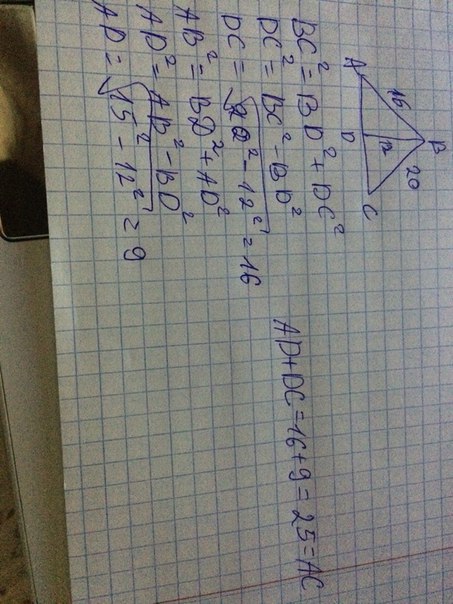 B
16
20
12
A
D
C
BC² = BD² + DC²
DC² = BC² - BD²
DC = √20² - 12² = 16
AB² = BD² + AD²
AD² = AB² - BD²
AD = √15² - 12² = 9
AD+DC=16+9=25=AC